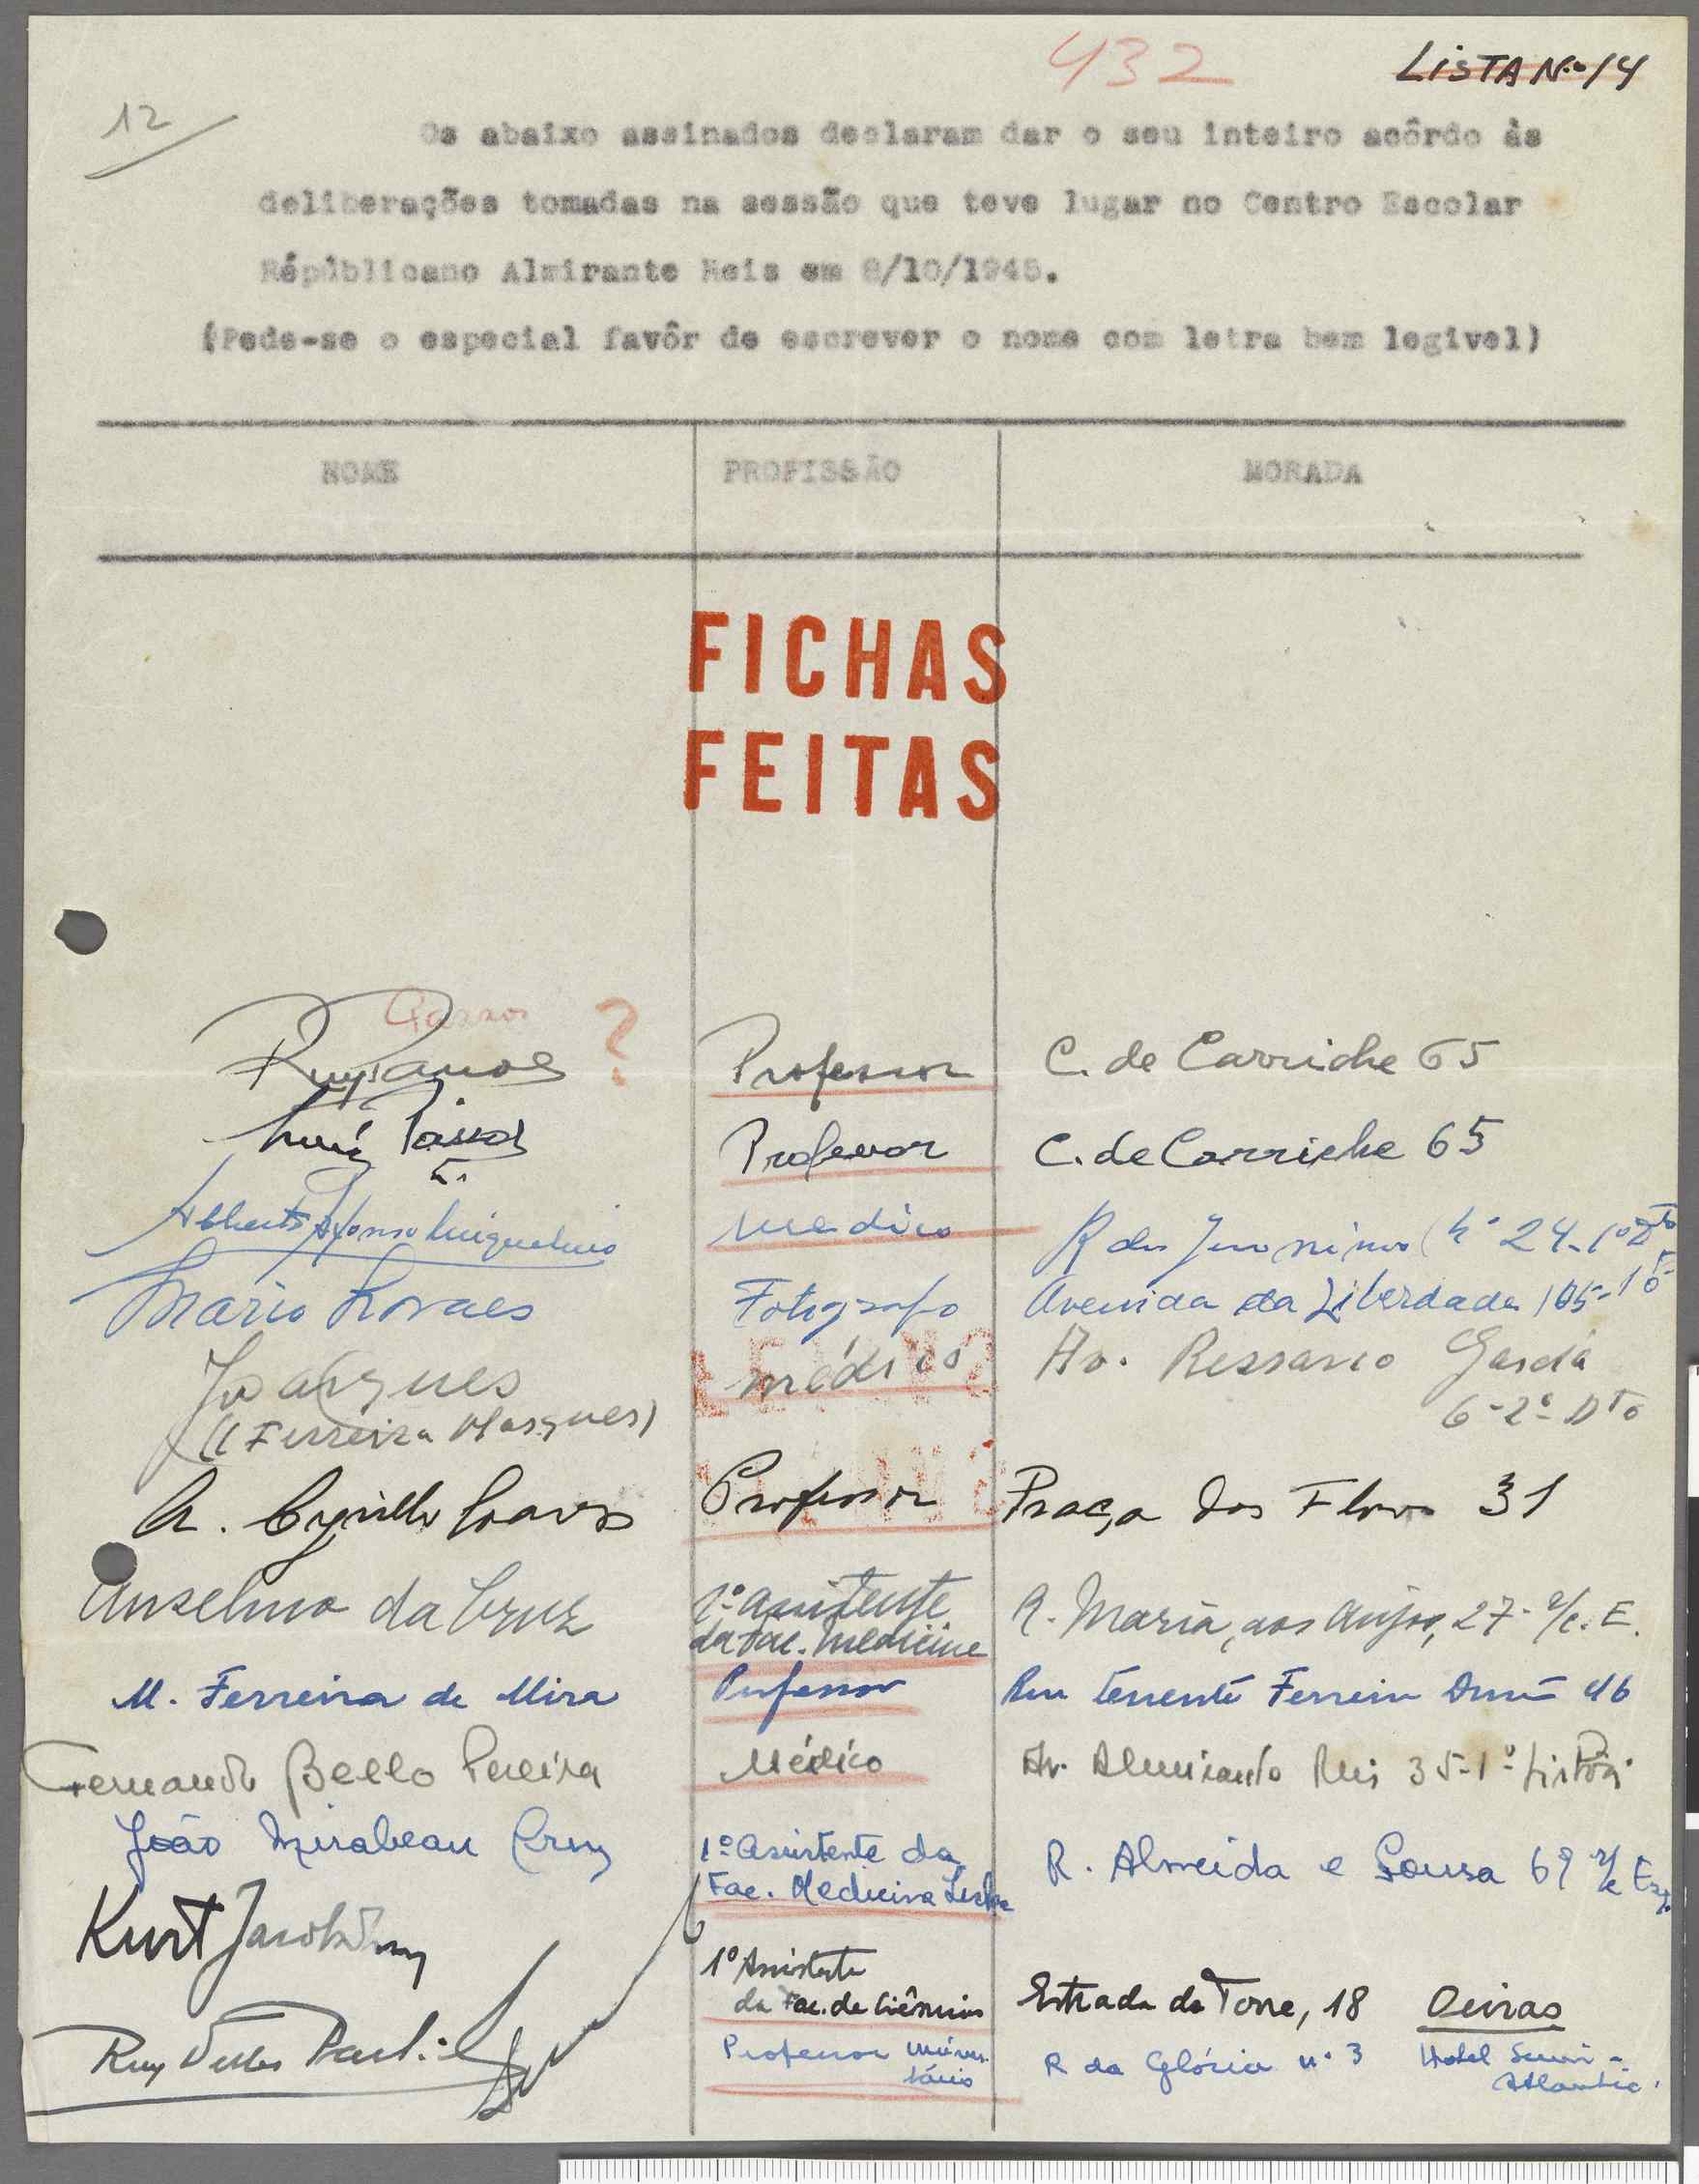 432
LISTA N.º 14
12
Os abaixo assinados declaram dar o seu inteiro acôrdo às
deliberações tomadas na sessão que teve lugar no Centro Escolar
Républicano Almirante Reis em 8/10/1945.
(Pede-se o especial favôr de escrever o nome com letra bem legivel)
NOME PROFISSÃO MORADA
FICHAS
FEITAS
?
Ruy Professor C. de Carriche 65
Professor C. de Carriche 65
Alberto Afonso Medico R dos Jeronimos 24-1º Dto
Mario Novaes Fotografo Avenida da Liberdade 105-1º
médico Av. Ressano Garcia
(Ferreira Marques) 6-2º-Dto
A. Cyrillo Soares Professor Praça das Flores 31
Anselmo da Cruz 1º assistente R. Maria, aos Anjos, 27-r/c. E.
da Fac. Medicina
M. Ferreira de Mira Professor Rua Tenente Ferreira 46
Fernando Bello Pereira Médico Av. Almirante Reis 35-1º Lisboa
João Mirabeau Cruz 1º Assistente da R. Almeida e Sousa 69 r/c Esq.
Fac. Medicina Lisboa
Kurt Jacobsohn 1º Assistente
da Fac. de Ciências Estrada da Torre, 18 Oeiras
Ruy Professor univer- R da Glória nº 3 Hotel
sitário Atlantic.